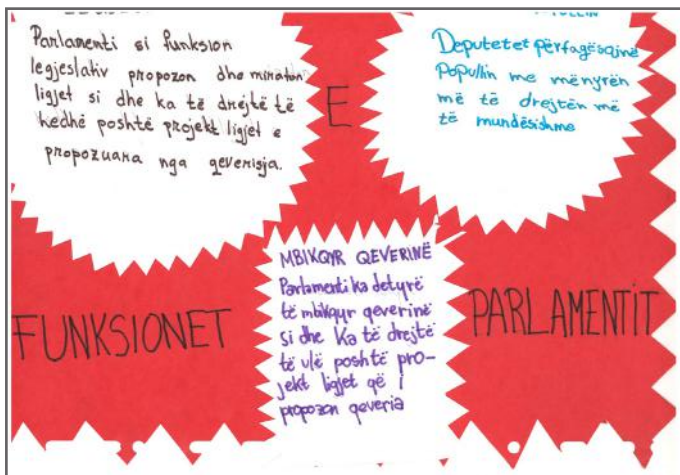 Parlamenti si funksion
legjeslativ propozon dhe miraton
ligjet si dhe ka të drejtë të
hedhë poshtë projekt ligjet e
propozuara nga qeverisja.
E
Deputetet përfaqësojnë
Popullin me mënyrën
më të drejtën më
të mundësishme
FUNKSIONET
PARLAMENTIT
MBIKQYR QEVERINË
Parlamenti ka detyrë
të mbikqyr qeverinë
si dhe Ka të drejtë
të ulë poshtë pro-
jekt ligjet që i
propozon qeveria